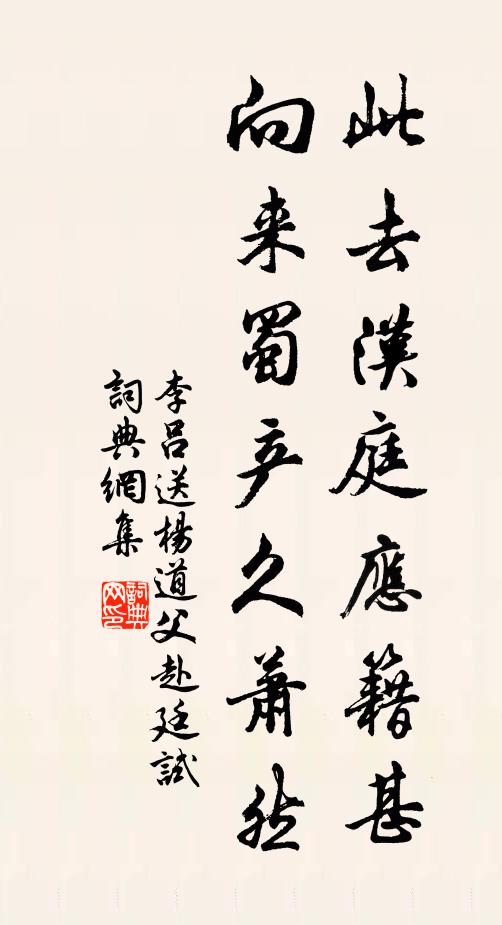 此去漢庭應籍甚
向来蜀产久蕭然
李吕送楊道父赴廷試
詞典網集
詞典网印